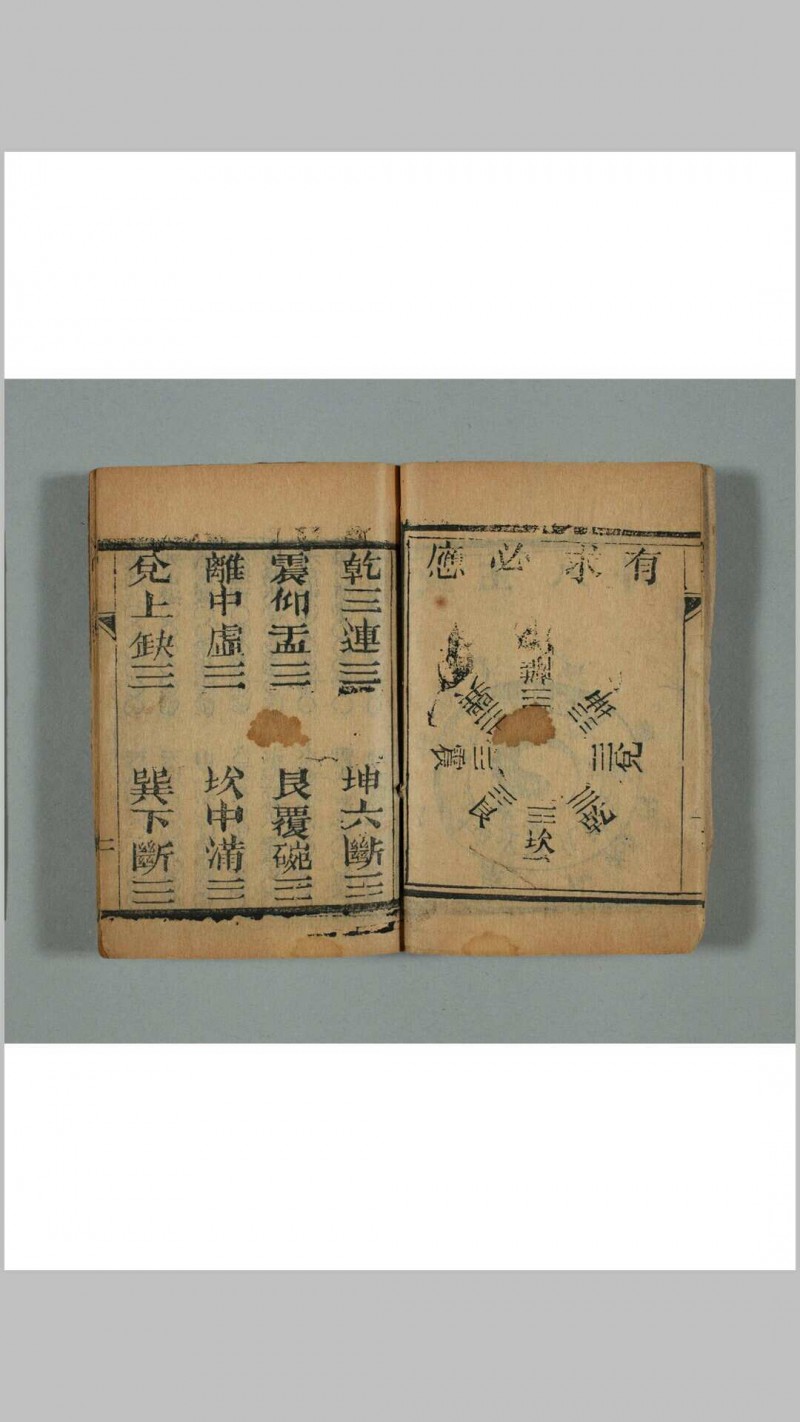 有求必應
離
坤
兌
乾
坎
艮
震
巽
乾三連☰
坤六斷☷
震仰盂☳
艮覆碗☶
離中虛☲
坎中滿☵
兌上缺☱
巽下斷☴
二